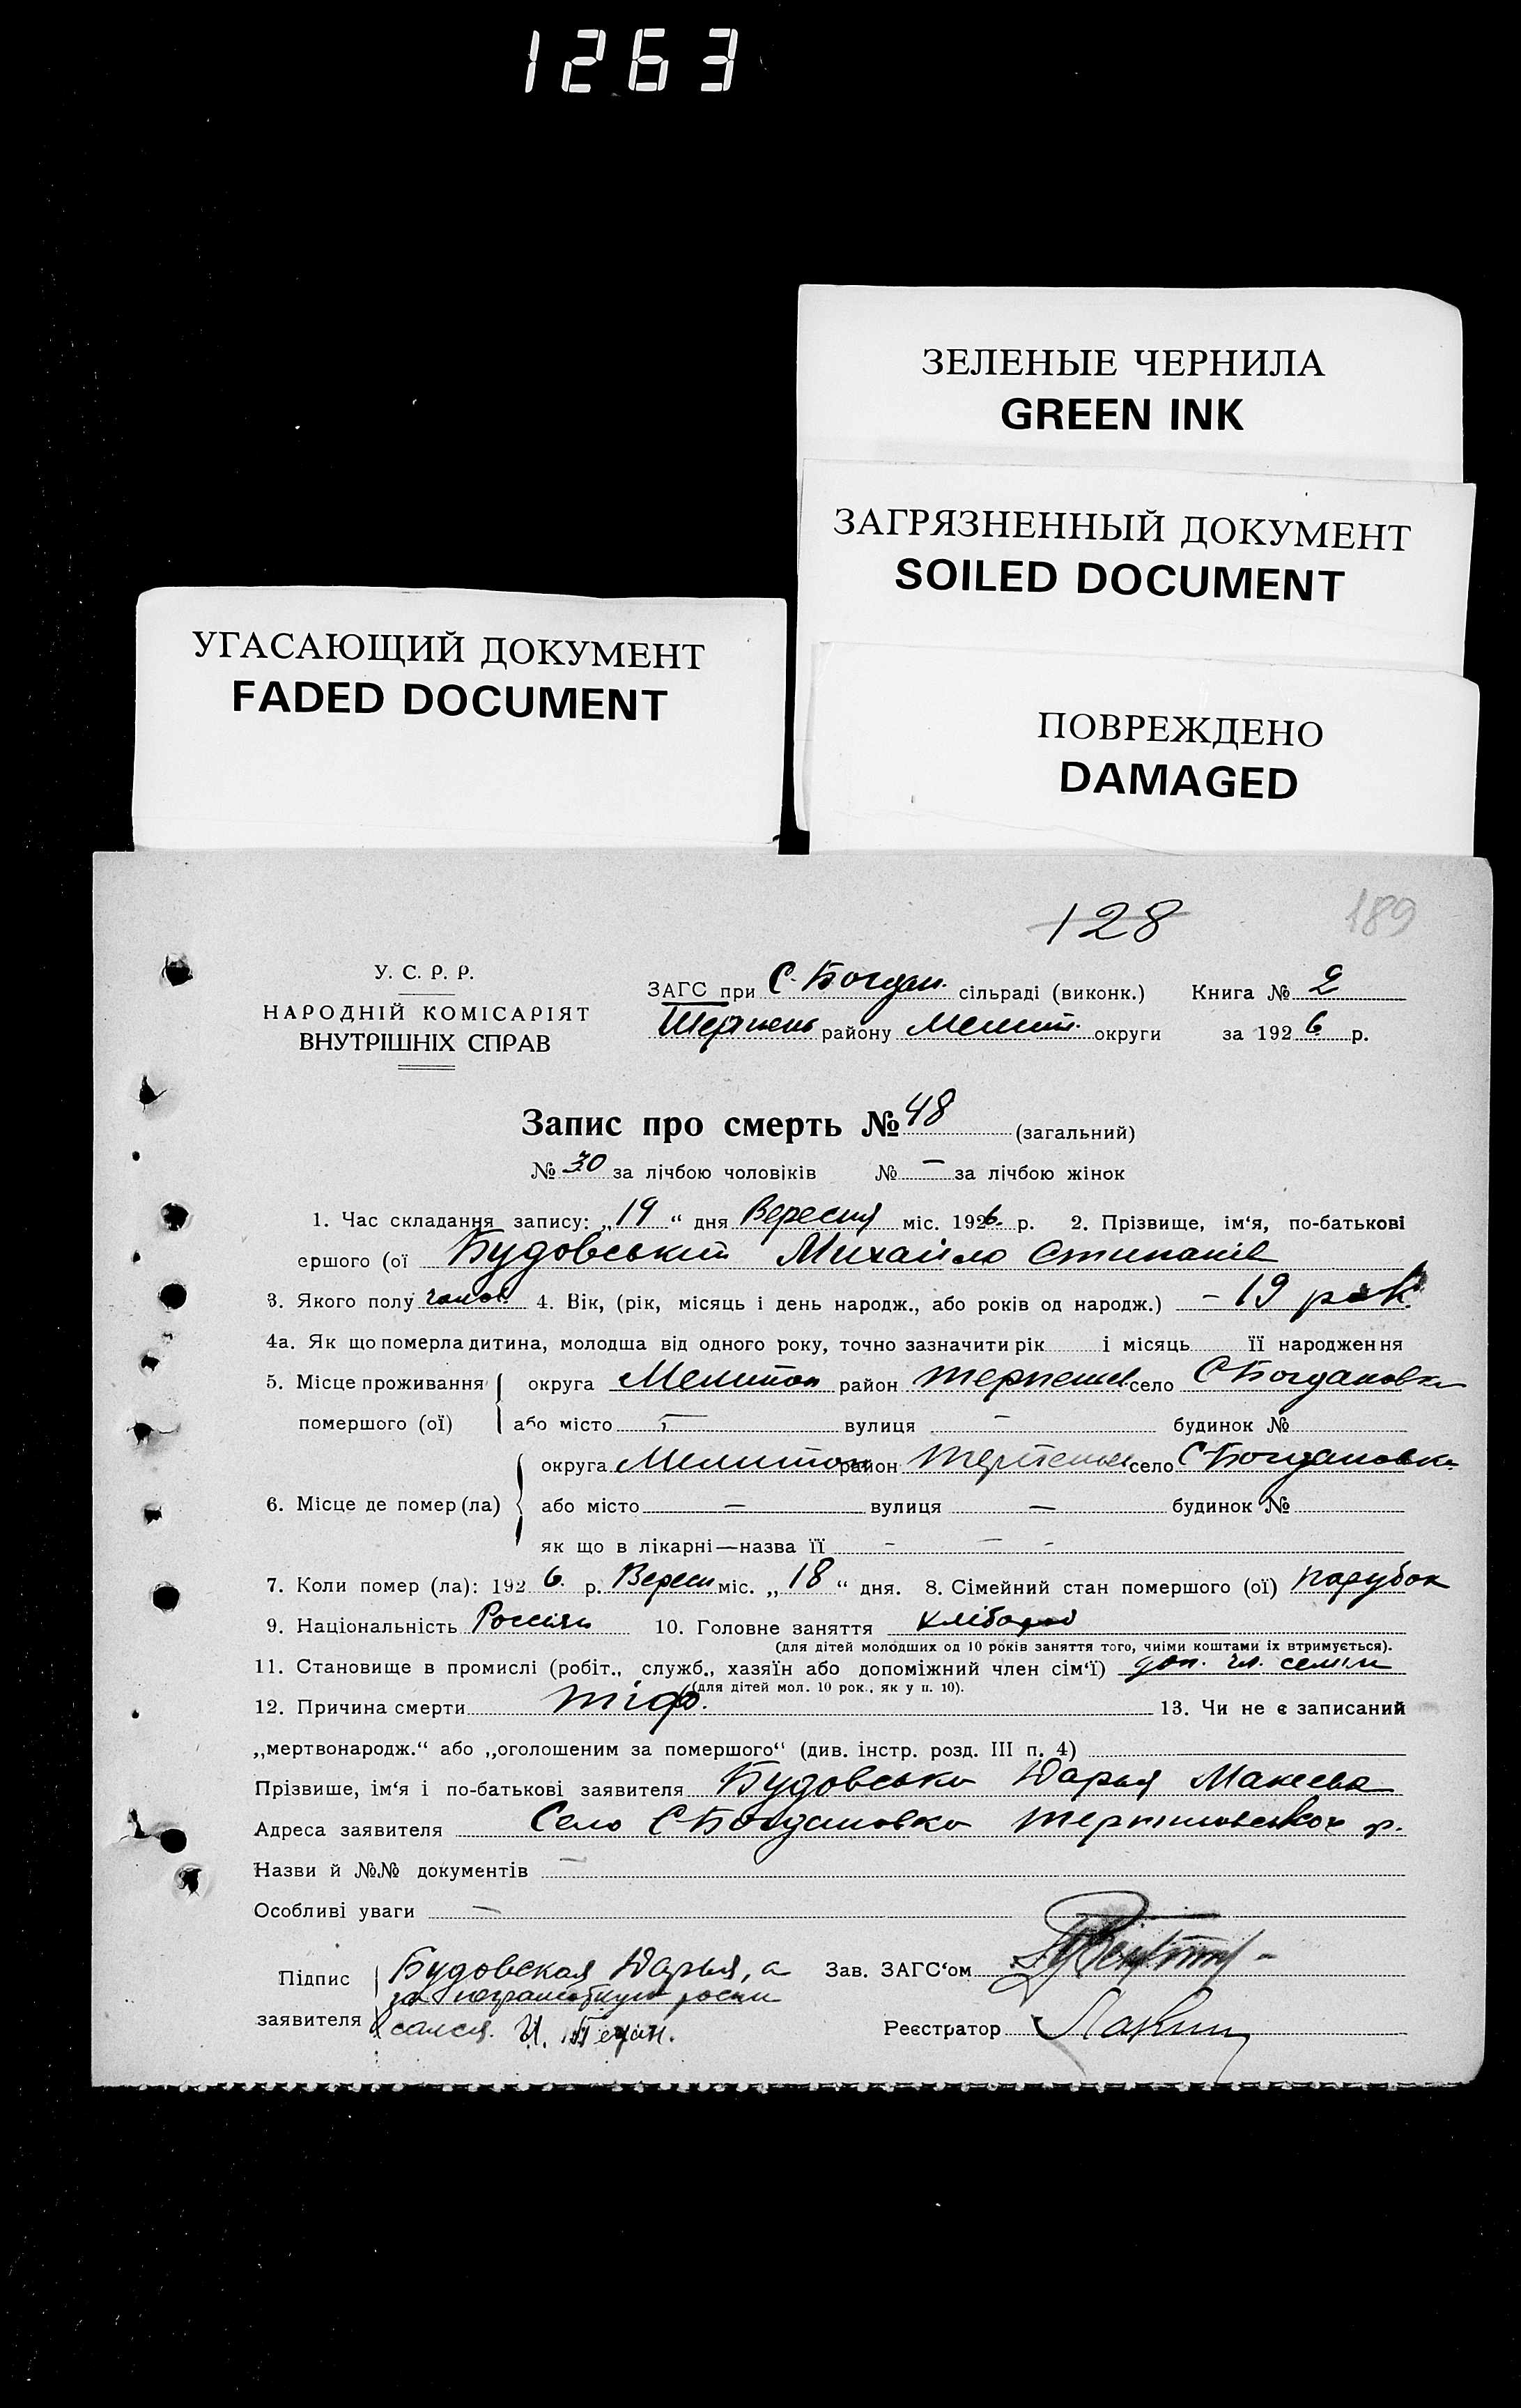 1263
ЗЕЛЕНЫЕ ЧЕРНИЛА
GREEN INK
ЗАГРЯЗНЕННЫЙ ДОКУМЕНТ
SOILED DOCUMENT
УГАСАЮЩИЙ ДОКУМЕНТ
FADED DOCUMENT
ПОВРЕЖДЕНО
DAMAGED
128 189
У. С. Р. Р.
НАРОДНІЙ КОМІСАРІЯТ
ВНУТРІШНІХ СПРАВ
ЗАГС при С-Богдан. сільраді (виконк.) Книга № 2
Терпень району Мелит. округи за 1926 р.
Запис про смерть № 48 (загальний)
№ 30 за лічбою чоловіків № — за лічбою жінок
1. Час складання запису: „19“ дня Вересня міс. 1926. р. 2. Прізвище, ім‘я, по-батькові
ершого (ої Будовський Михайло Степанів
3. Якого полу чолов. 4. Вік, (рік, місяць і день народж., або років од народж.) – 19 рок.
4а. Як що померла дитина, молодша від одного року, точно зазначити рік і місяць її народження
5. Місце проживання округа Мелитоп район Терпеньев село С Богдановка
помершого (ої) або місто — вулиця — будинок №
округа Мелитоп район Терпеньев село С Богдановка
6. Місце де помер (ла) або місто — вулиця — будинок №
як що в лікарні—назва її - - -
7. Коли помер (ла): 1926. р. Вересн міс. „18“ дня. 8. Сімейний стан помершого (ої) парубок
9. Національність Россіян 10. Головне заняття хлібороб
(для дітей молодших од 10 років заняття того, чиїми коштами їх втримується).
11. Становище в промислі (робіт., служб., хазяїн або допоміжний член сім‘ї) доп. чл. семьи
(для дітей мол. 10 рок., як у п. 10).
12. Причина смерти тіф. 13. Чи не є записаний
„мертвонародж.“ або „оголошеним за помершого“ (див. інстр. розд. III п. 4)
Прізвише, ім‘я і по-батькові заявителя Будовська Дарья Макеева
Адреса заявителя Село С Богдановка р.
Назви й №№ документів —
Особливі уваги —
Підпис Будовская Дарья, а Зав. ЗАГС‘ом
за неграмотную роспи
заявителя сался. И. Реєстратор